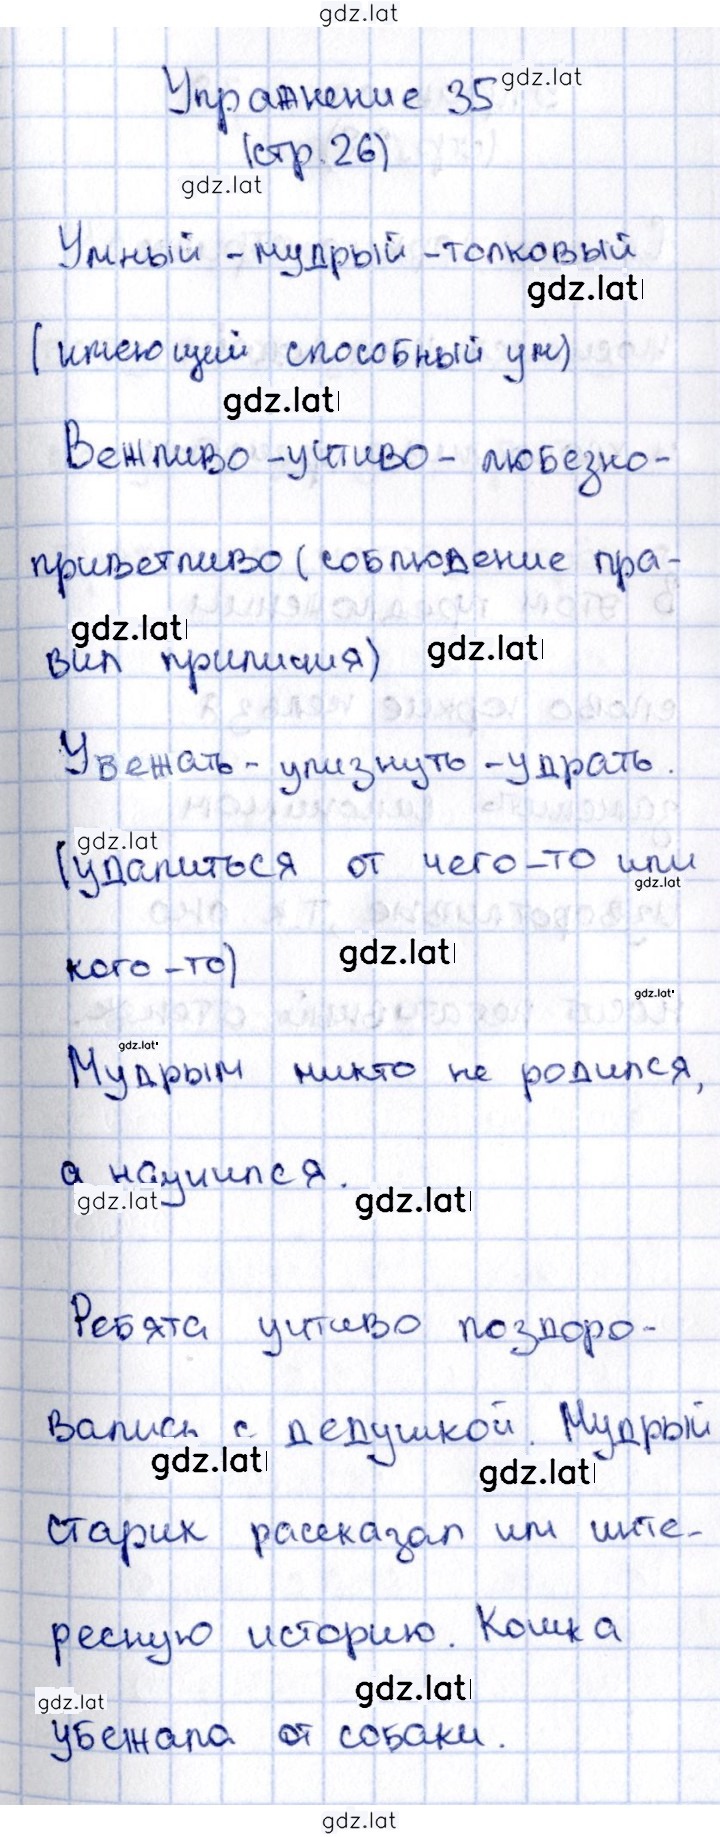 gdz.lat
Упражнение 35 gdz.lat
(стр. 26)
gdz.lat
Умный - мудрый - толковый
gdz.lat
(имеющий способный ум)
gdz.lat
Вежливо - учтиво - любезно -
приветливо (соблюдение пра-
gdz.lat
вил приличия) gdz.lat
Увежать - улизнуть - удрать.
gdz.lat
(удалиться от чего-то или
gdz.lat
кого-то) gdz.lat
gdz.lat
gdz.lat
Мудрым никто не родился,
а научился.
gdz.lat gdz.lat
Ребята учтиво поздоро-
вались с дедушкой. Мудрый
gdz.lat gdz.lat
старик рассказал им инте-
ресную историю. Кошка
gdz.lat gdz.lat
убежала от собаки.
gdz.lat